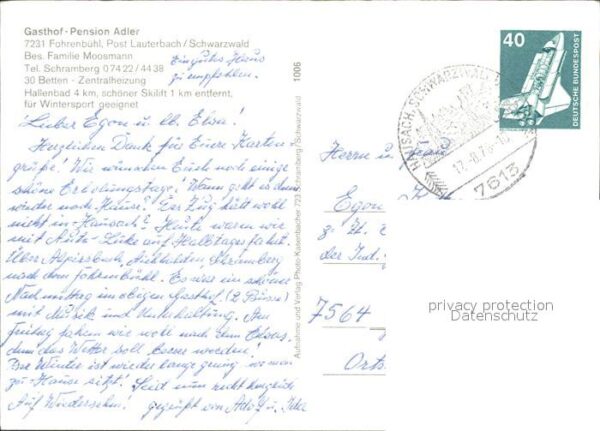 Gasthof-Pension Adler
7231 Fohrenbühl, Post Lauterbach/Schwarzwald
Bes. Familie Moosmann
Tel. Schramberg 0 74 22 / 44 38
30 Betten - Zentralheizung
Hallenbad 4 km, schöner Skilift 1 km entfernt,
für Wintersport geeignet
Ein gutes Haus
zu empfehlen.
Lieber Egon u. lb. Elsa!
Herzlichen Dank für Eure Karten-
grüße! Wir wünschen Euch noch einige
schöne Erholungstage! Wann geht es denn
wieder nach Hause? Der Zug hält wohl
nicht in Hausach? Heute waren wir
mit Auto-Lúke auf Halbtagesfahrt.
Über Alpirsbach, Aichhalden, Schramberg
nach dem Fohrenbühl. Es war ein schöner
Nachmittag im obigen Gasthof (2 Busse)
mit Musik und Unterhaltung. Am
Freitag fahren wir wohl nach dem Elsass,
denn das Wetter soll besser werden!
Der Winter ist wieder lange genug wo man
zu Hause sitzt! Seid nun recht herzlich
Auf Wiedersehen! gegrüßt von Adolf u.
1006
Aufnahme und Verlag Photo-Kasenbacher 723 Schramberg/Schwarzwald
40
DEUTSCHE BUNDESPOST
HAUSACH, SCHWARZWALD
7613
Herrn u.
Egon
z. Zt.
der
7564
Orts
privacy protection
Datenschutz